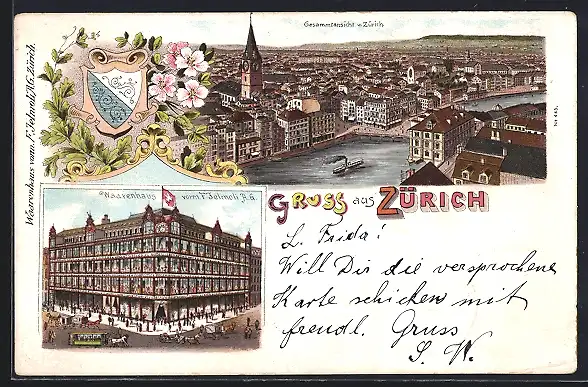 Gesammtansicht v. Zürich
Waarenhaus vorm. F. Jelmoli A.G. Zürich.
No 445.
Waarenhaus vorm. F. Jelmoli A.G.
GRUSS aus ZÜRICH
L. Frida!
Will Dir die versprochene
Karte schicken mit
freundl. Gruss
S. W.